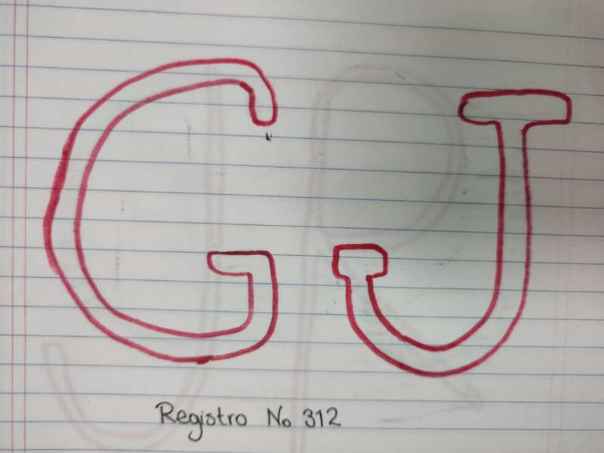 GJ
Registro No 312